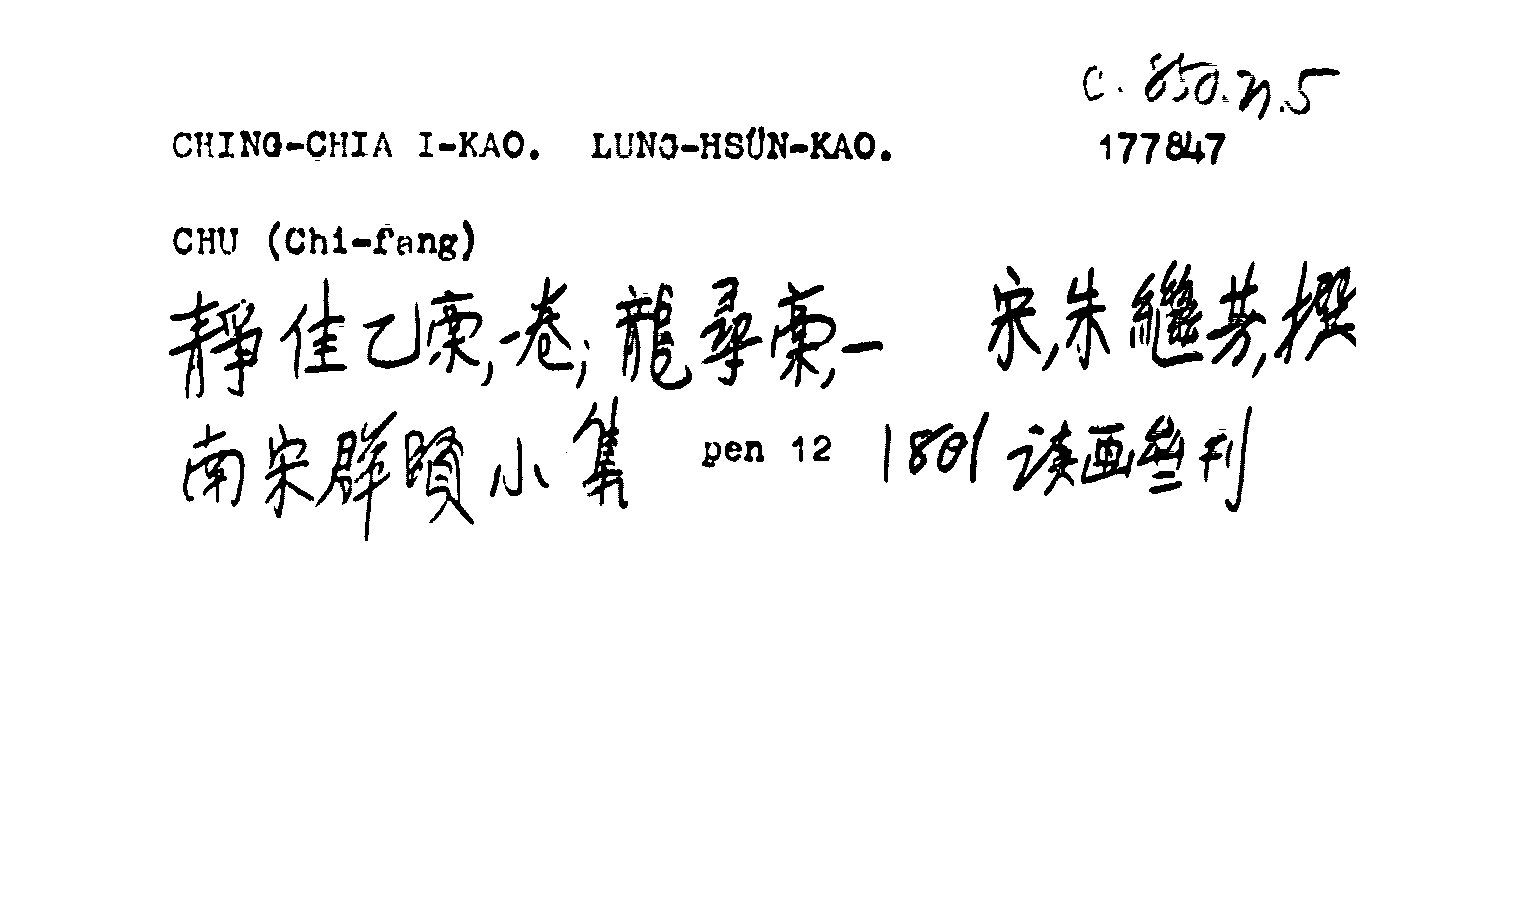 C. 850.n.5
CHING-CHIA I-KAO. LUNG-HSÜN-KAO. 177847
CHU (Chi-fang)
靜佳乙稾,一卷;龍尋稾,一 宋,朱繼芳,撰
南宋群賢小集 pen 12 1801 读画斋刊